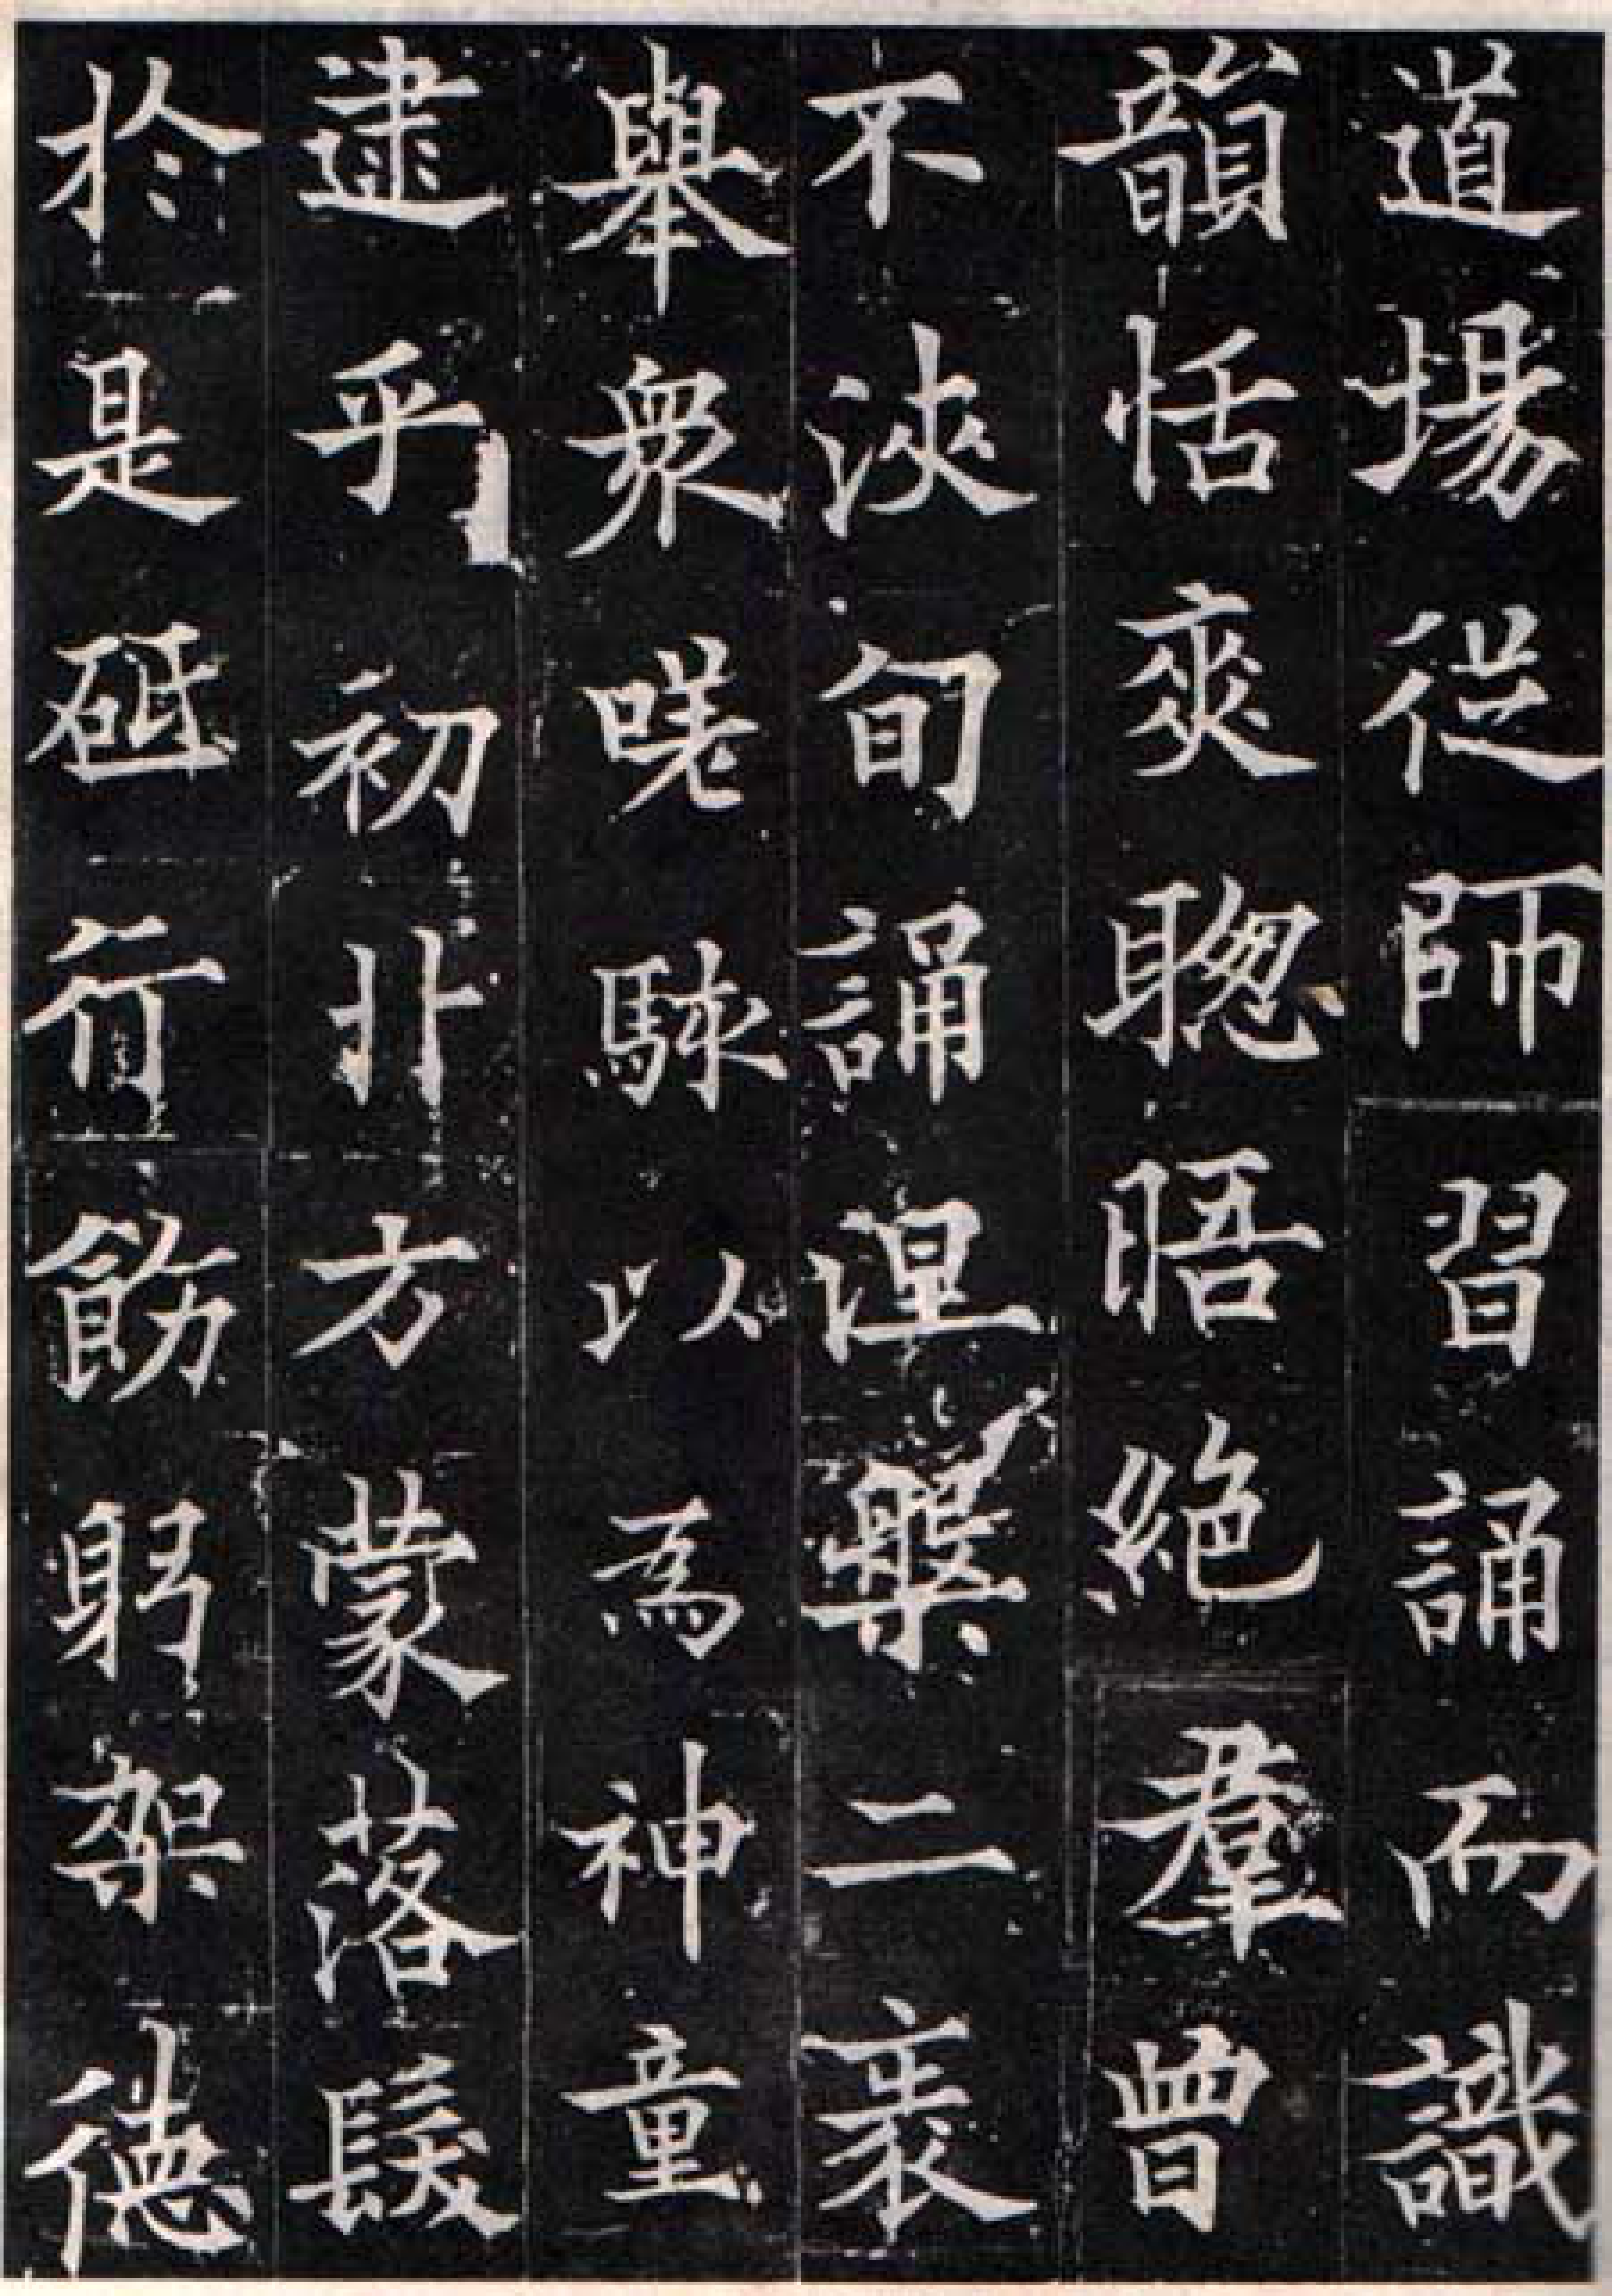 道場從師習誦而識
韻恬爽聰晤絕羣曾
不浹旬誦涅槃二袠
舉衆嗟駭以為神童
逮乎初卝方蒙落髮
於是砥行飭躬架德